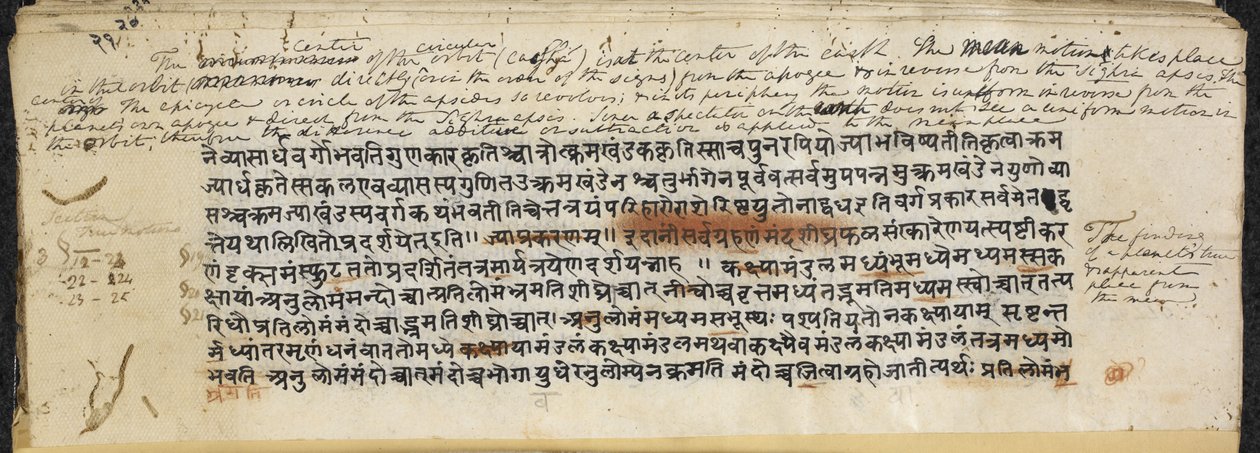 २१ २०
The center of the circular orbit (Cacshá) is at the center of the earth. The mean motion takes place
in that orbit directly (or in the order of the signs) from the apogee & in reverse from the Síghra apsis. The
center of the epicycle or circle of the apsides so revolves; & in its periphery the motion is uniform in reverse from the
planet's own apogee & direct from the Síghra apsis. Since a spectator on the earth does not see a uniform motion in
the orbit, therefore the difference additive or subtractive is applied to the mean place
नेव्यासार्धवर्गोभवतिगुणकारकृतिश्चात्रोत्क्रमखंडककृतिस्तस्माच्चपुनरपियोज्याभविष्यतीतिकृत्वाक्रम
ज्यार्धकृतेस्सकलएवव्यासस्यगुणितउत्क्रमखंडेनश्चतुर्भागेनपूर्ववत्सर्वमुपपन्नमुत्क्रमखंडेनगुणोव्या
सश्चक्रमज्याखंडस्यवर्गकथंभवतीतिचेत्तत्रयंपरिहारोराशेरिष्टयुतोनाद्वधइतिवर्गप्रकारसर्वमेत
त्तेयथालिखितोप्रदर्शयेत्इति॥ ज्याप्रकरणम्॥ इदानींसर्वग्रहणंमंदशीघ्रफलसंस्कारेणयत्स्पष्टीकर
णंदृक्समंस्फुटंततोप्रदर्शितंतत्रमार्यत्रयेणदर्शयन्नाह ॥ कक्ष्यामंडलमध्यंभूमध्येमध्यमस्सक
क्षायांअनुलोमंमन्दोच्चात्प्रतिलोमंभ्रमतिशीघ्रोच्चात्नीचोच्चवृत्तमध्यंतद्भ्रमतिमध्यमस्स्वोच्चात्तत्प
रिधौप्रतिलोमंमंदोच्चाद्भ्रमतिशीघ्रोच्चात्।अनुलोमंमध्यमसभूस्थः पश्यतियतोनकक्ष्यायाम् स्पष्टन्त
र्मध्यांतरमृणंधनंवाततोमध्ये कक्ष्यायामंडलंकक्ष्यामंडलमथवाकक्ष्यैवमंडलंकक्ष्यामंडलंतत्रमध्यमो
भवति अनुलोमंमंदोच्चात्मंदोच्चभोगायुधेरनुलोम्येनक्रमति मंदोच्चंजित्वाग्रहोजातीत्यर्थः प्रतिलोमंभ्र
भ्रमति
Section
True motions
3 §12-21
22-24
23-25
The finding
of a planet's true
& apparent
place from
the mean